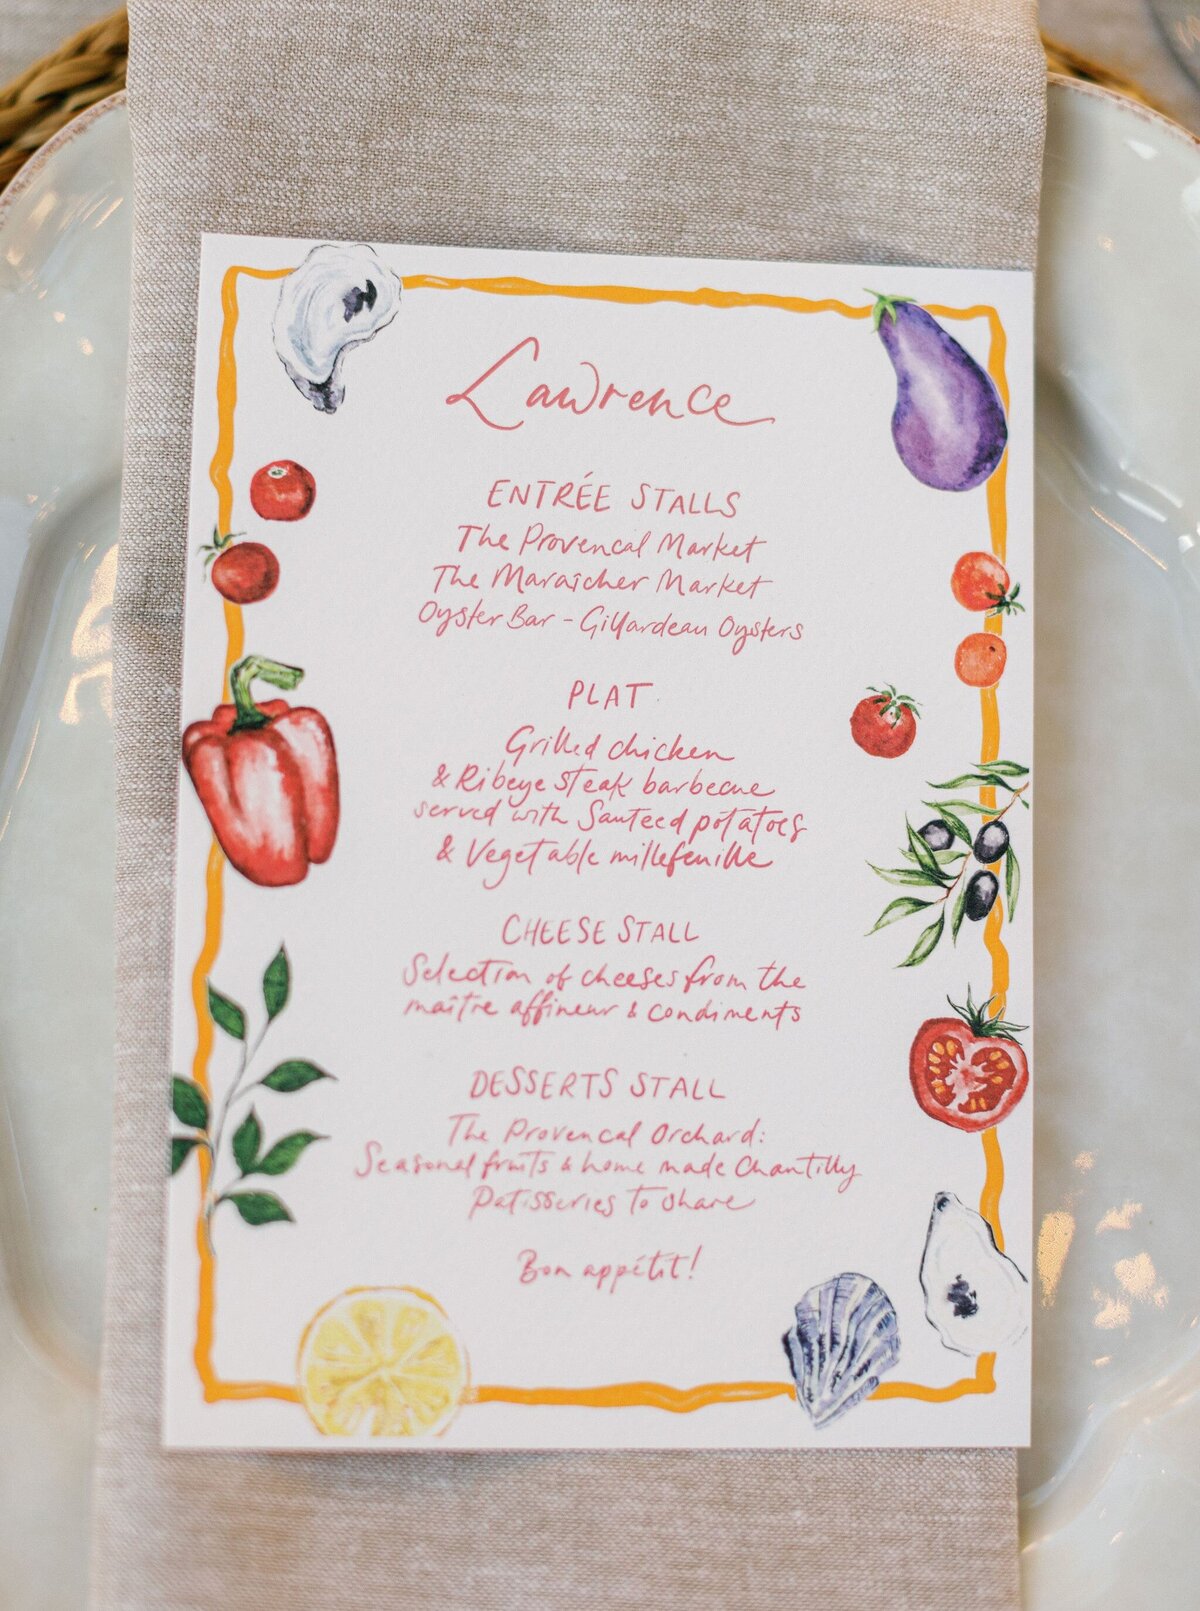 Lawrence
ENTRÉE STALLS
The Provencal Market
The Maraîcher Market
Oyster Bar - Gillardeau Oysters
PLAT
Grilled chicken
& Ribeye steak barbecue
served with Sauteed potatoes
& Vegetable millefeuille
CHEESE STALL
Selection of cheeses from the
maître affineur & condiments
DESSERTS STALL
The Provencal Orchard:
Seasonal fruits & home made Chantilly
Patisseries to share
Bon appétit!